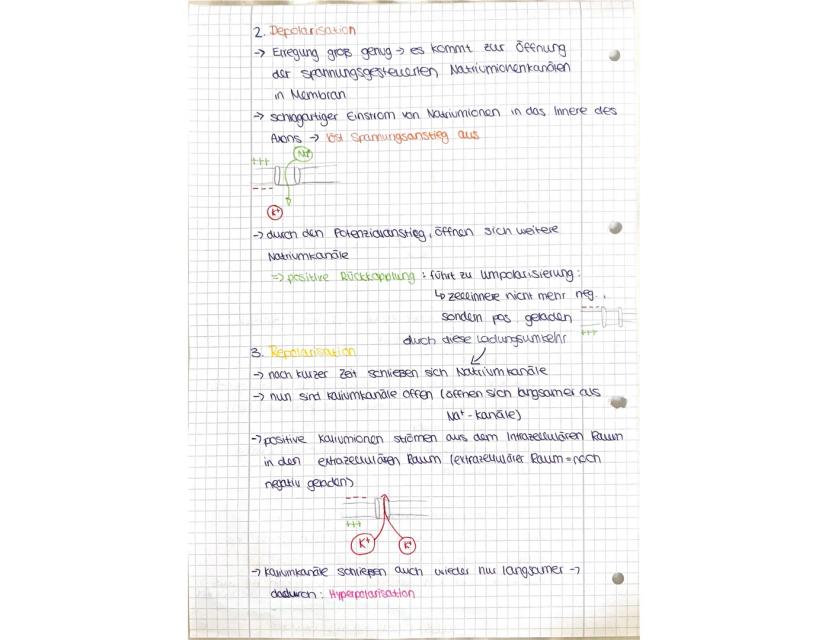 2. Depolarisation
-> Erregung groß genug -> es kommt zur Öffnung
der spannungsgesteuerten Natriumionenkanälen
in Membran
-> schlagartiger Einstrom von Natriumionen in das Innere des
Axons -> löst Spannungsanstieg aus
+++ Na+
---
K+
-> durch den Potenzialanstieg, öffnen sich weitere
Natriumkanäle
=> positive Rückkopplung : führt zu Umpolarisierung :
↳ Zellinnere nicht mehr neg.,
sondern pos geladen
---
+++
durch diese Ladungsumkehr
3. Repolarisation
-> nach kurzer Zeit schließen sich Natriumkanäle
-> nun sind Kaliumkanäle offen (öffnen sich langsamer als
Na+ - Kanäle)
-> positive Kaliumionen strömen aus dem Intrazellulären Raum
in den extrazellulären Raum (extrazellulärer Raum = noch
negativ geladen)
---
+++
K+ K+
-> Kaliumkanäle schließen auch wieder nur langsamer ->
dadurch : Hyperpolarisation